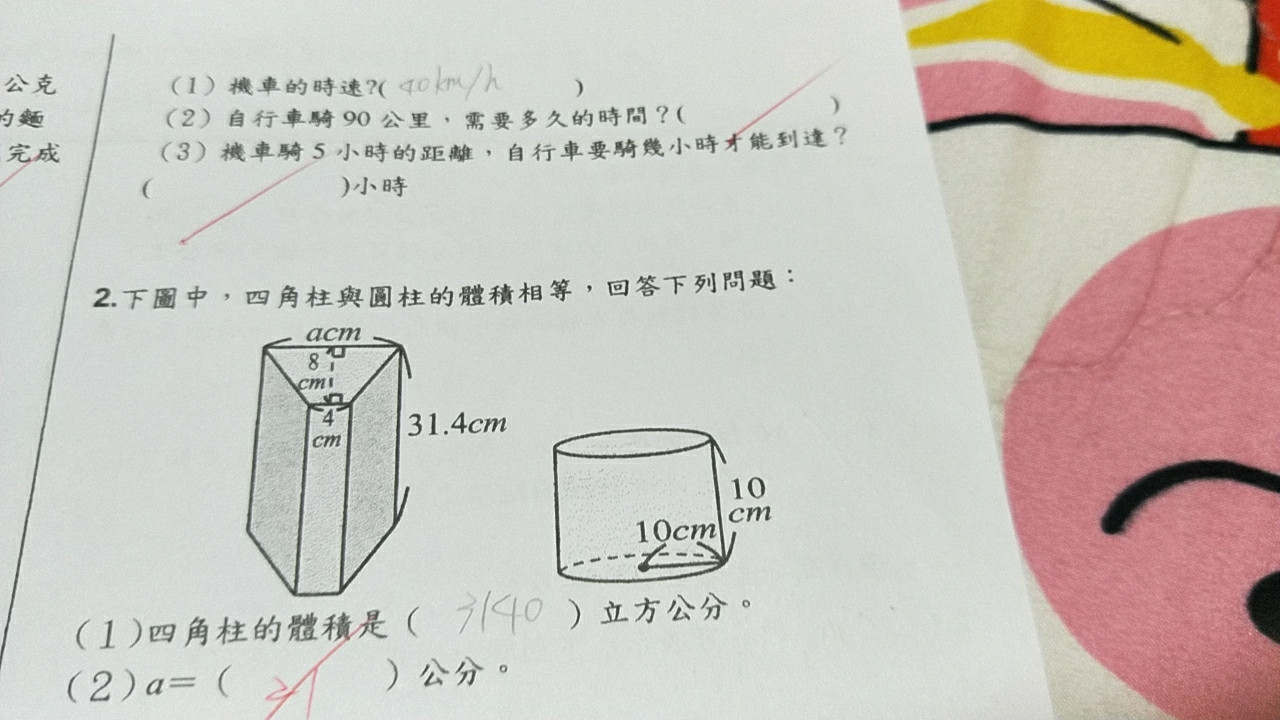 公克
的麵
完成
(1) 機車的時速?( 40km/h )
(2) 自行車騎 90 公里，需要多久的時間？( )
(3) 機車騎 5 小時的距離，自行車要騎幾小時才能到達？
( )小時
2.下圖中，四角柱與圓柱的體積相等，回答下列問題：
acm
8
cm
4
cm
31.4cm
10
cm
10cm
(1)四角柱的體積是 ( 3140 ) 立方公分。
(2) a= ( ) 公分。